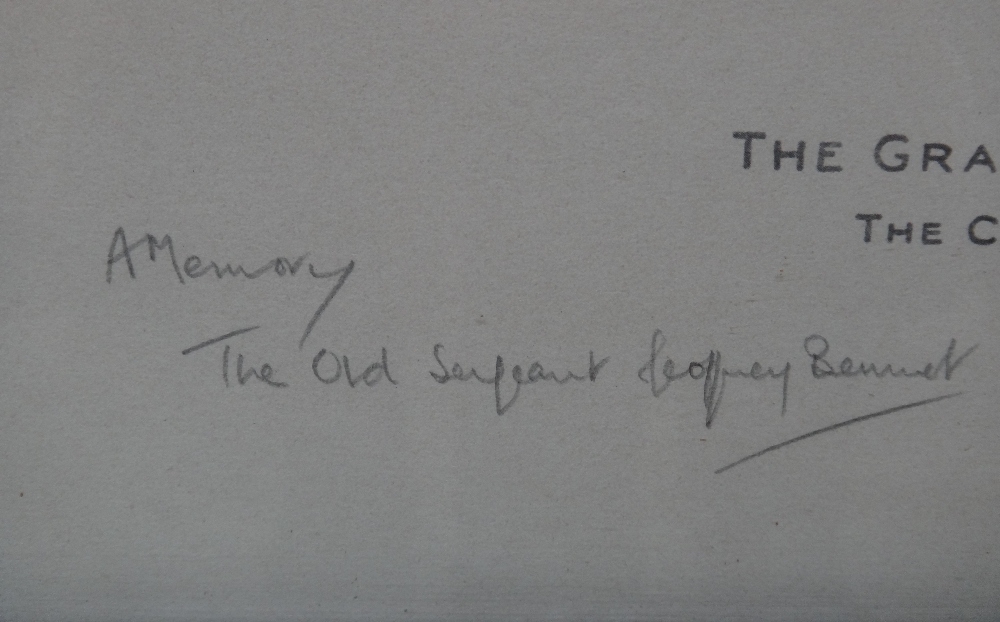 THE GRA
THE C
A Memory
The Old Sergeant Geoffrey Bennet